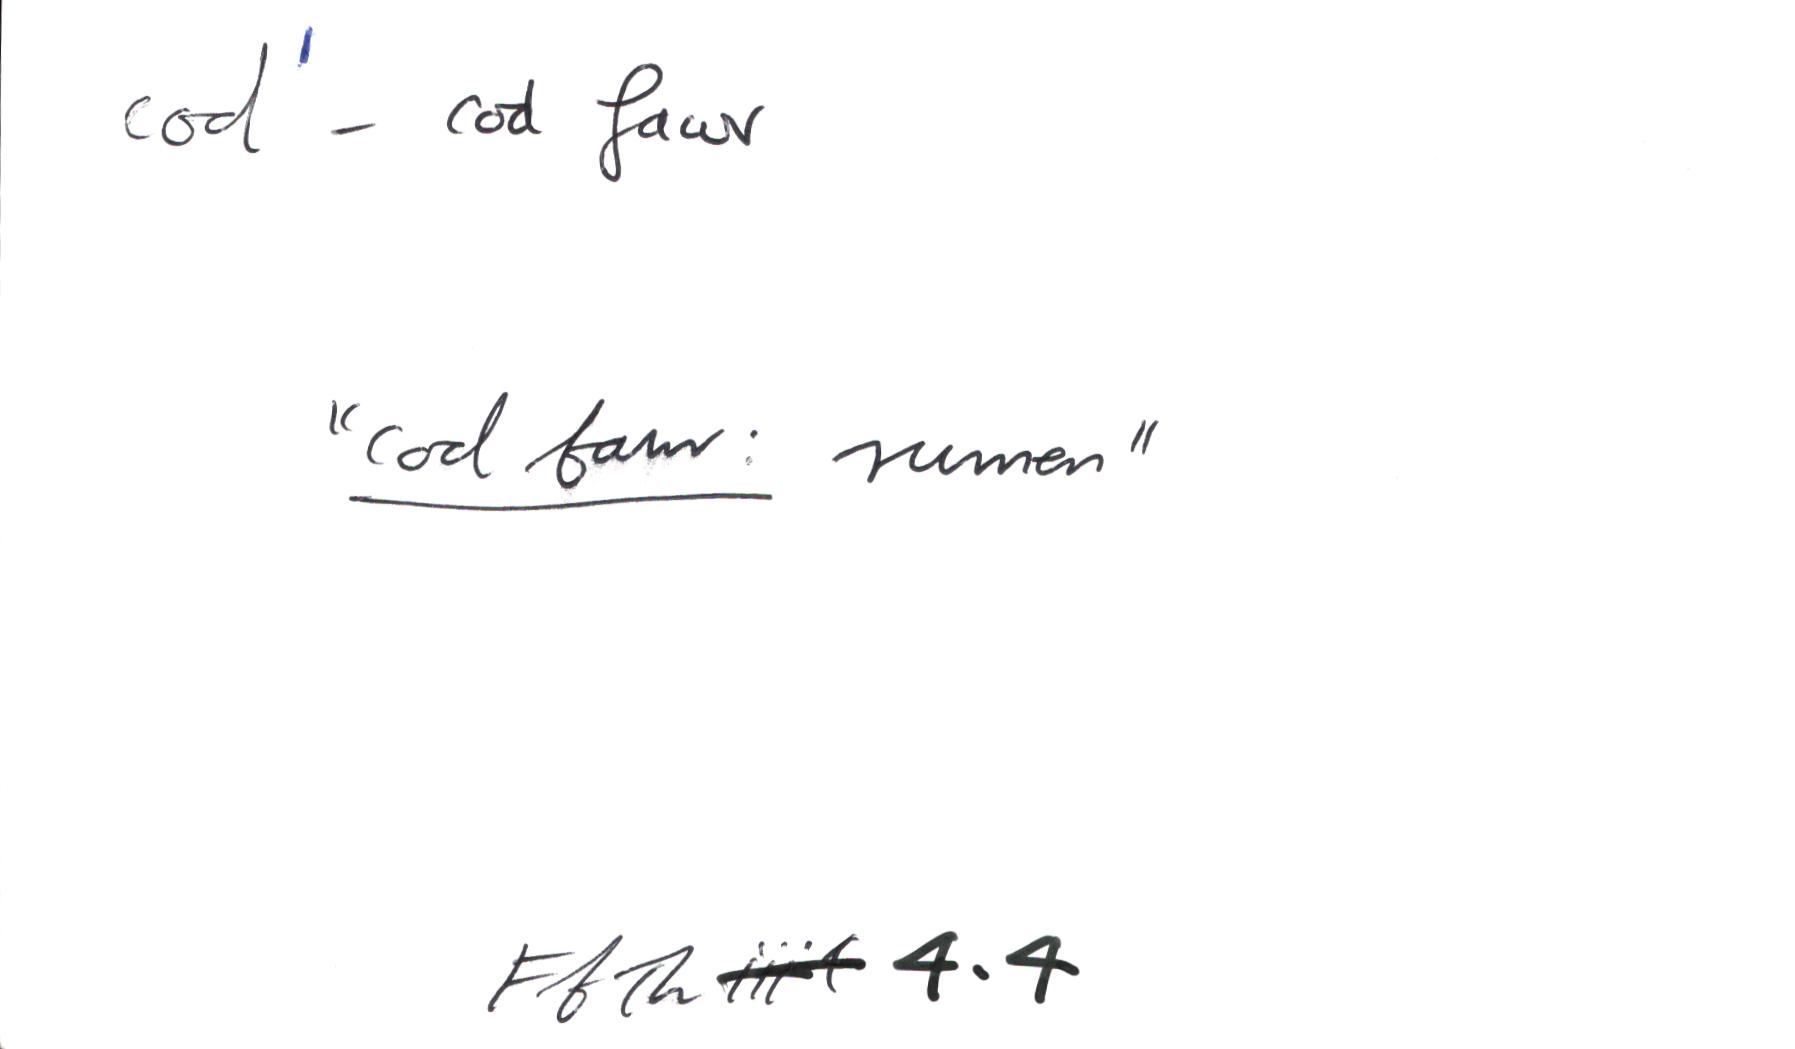 cod' - cod fawr
"cod fawr: rumen"
Ff Th 4.4